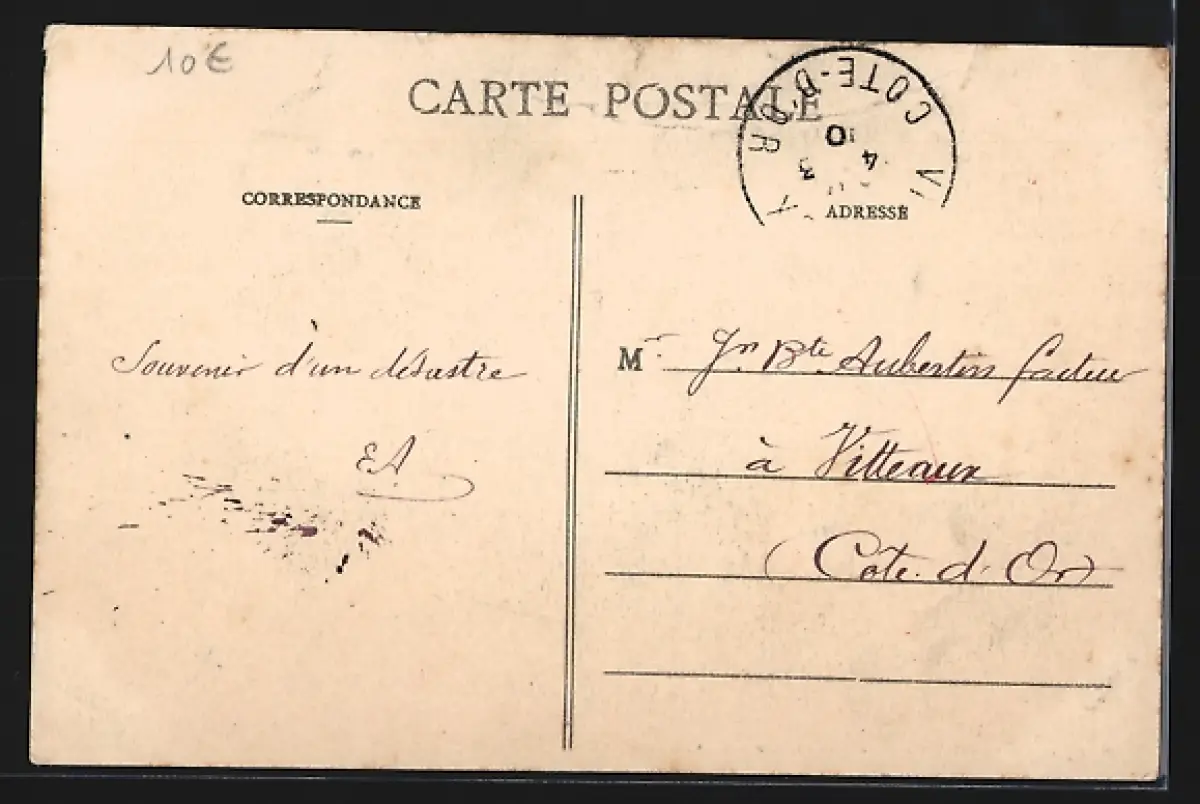 10€
CARTE POSTALE
COTE-D'OR
4 3
10
CORRESPONDANCE
ADRESSE
Souvenir d'un désastre
EA
Mr. Jn Bte Aubertin facteur
à Vitteaux
(Côte-d'Or)